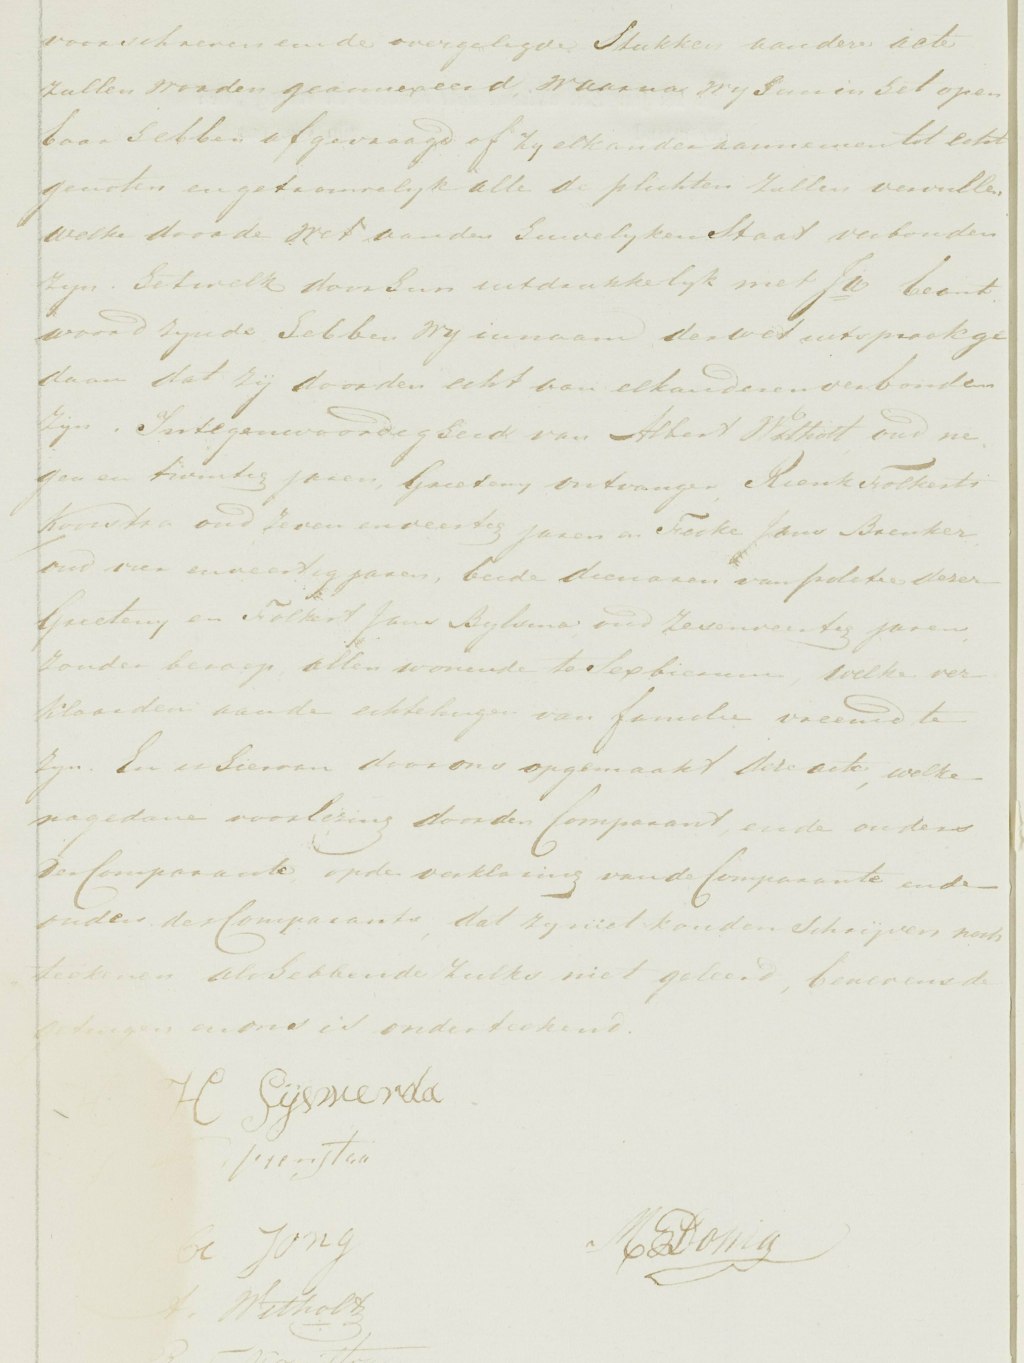 voorschreven en de overgelegde Stukken aan deze acte
zullen worden geannexeerd, Waarna Wij hun in het open
baar hebben afgevraagd of zy elkander aannemen tot echt
genoten en getrouwelyk alle de plichten zullen vervullen
welke door de Wet aan den huwelyken Staat verbonden
zyn. Het welk door hun uitdrukkelyk met Ja beant
woord zynde hebben Wy in naam der wet uitspraak ge
daan dat zij door den echt aan elkanderen verbonden
zyn. In tegenwoordigheid van Albert Witholt, oud ne
gen en twintig jaren, Grieteny ontvanger, Rienk Folkerts
Kooistra oud zeven en veertig jaren en Feike Jans Brenker
oud vier en veertig jaren, beide dienaren van politie dezer
Grieteny en Folkert Jans Bylsma oud zes en veertig jaren,
zonder beroep, allen wonende te Sexbierum, welke ver
klaarden aan de echtelingen van familie vreemd te
zyn. En is hiervan door ons opgemaakt deze acte, welke
na gedane voorlezing door den Comparant, en de ouders
der Comparante, op de verklaring van de Comparante en de
ouders des Comparants, dat zy niet konden schrijven noch
teekenen als hebbende zulks niet geleerd, benevens de
getuigen en ons is onderteekend.
H Sijswerda
de Jong
M Donia
A. Witholt